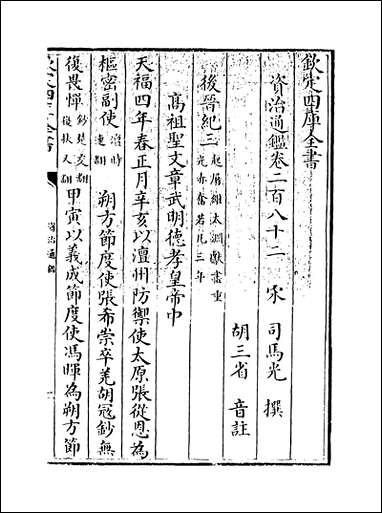 欽定四庫全書
資治通鑑卷二百八十二 宋 司馬光 撰
胡三省 音註
後晉紀三 起屠維大淵獻盡重光赤奮若凡三年
高祖聖文章武明德孝皇帝中
天福四年春正月辛亥以澶州防禦使太原張從恩為
樞密副使 澶時連翻 朔方節度使張希崇卒羌胡寇鈔無
復畏憚 鈔楚交翻復扶又翻 甲寅以義成節度使馮暉為朔方節
資治通鑑